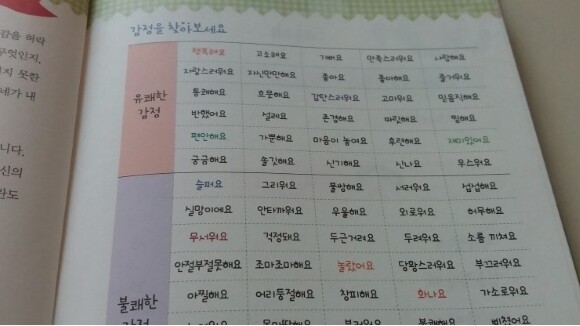 감정을 찾아보세요
감을 허락
무엇인지.
지 못한
네가 내
니다.
신의
란도
유쾌한
감정
행복해요 고소해요 기뻐요 만족스러워요 사랑해요
자랑스러워요 자신만만해요 좋아요 좋아해요 즐거워요
통쾌해요 흐뭇해요 감탄스러워요 고마워요 믿음직해요
반했어요 설레요 존경해요 짜릿해요 찡해요
편안해요 가뿐해요 마음이 놓여요 후련해요 재미있어요
궁금해요 솔깃해요 신기해요 신나요 우스워요
불쾌한
감정
슬퍼요 그리워요 불쌍해요 서러워요 섭섭해요
실망이에요 안타까워요 우울해요 외로워요 허무해요
무서워요 걱정돼요 두근거려요 두려워요 소름 끼쳐요
안절부절못해요 조마조마해요 놀랐어요 당황스러워요 부끄러워요
아찔해요 어리둥절해요 창피해요 화나요 가소로워요
부러워요 불쾌해요 삐쳤어요